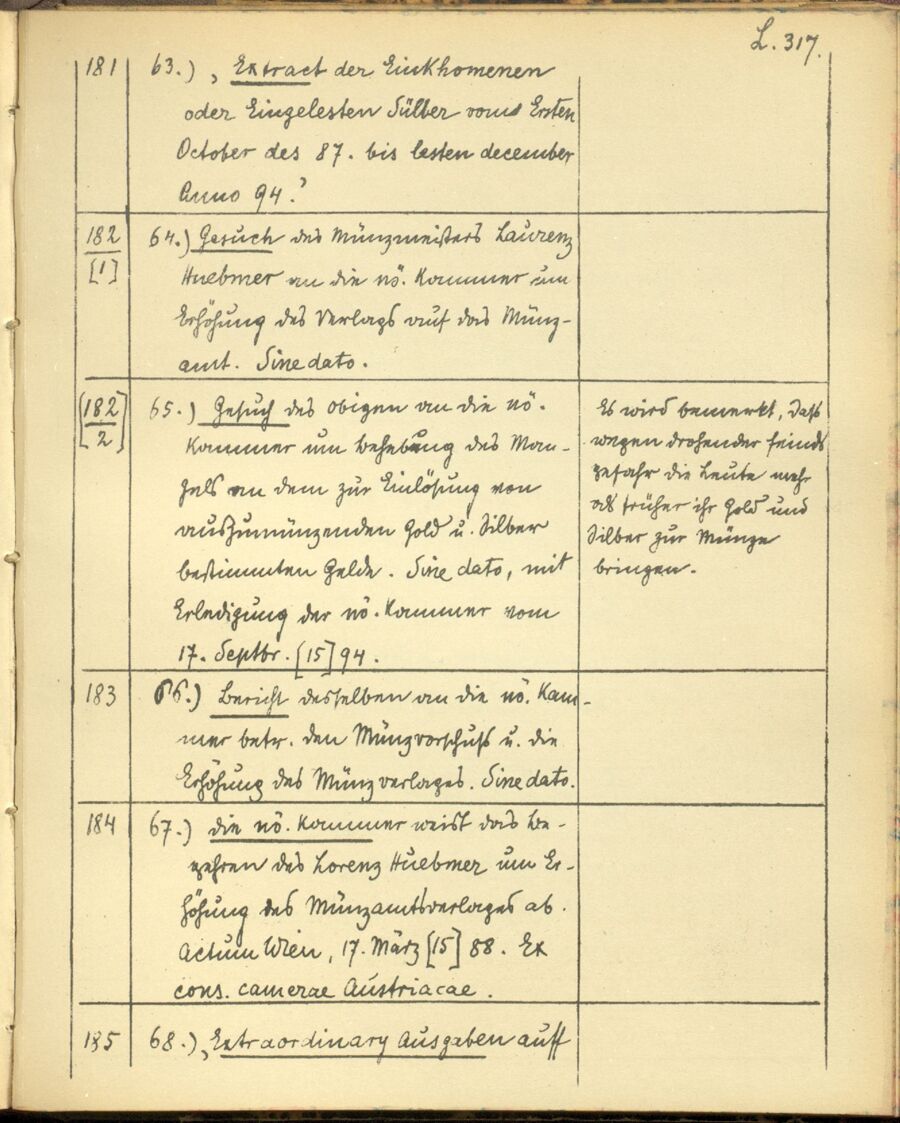 L. 317.
181 63.) „Extract der Einkhomenen
oder Eingelesten Sülber vom Ersten
October des 87. bis lesten december
Anno 94."
182
[1]
64.) Gesuch des Münzmeisters Laurenz
Huebmer an die nö. Kammer um
Erhöhung des Verlags auf das Münz-
amt. Sine dato.
[182
2]
65.) Gesuch des obigen an die nö.
Kammer um Behebung des Man-
gels an dem zur Einlösung von
auszumünzenden Gold u. Silber
bestimmten Gelde. Sine dato, mit
Erledigung der nö. Kammer vom
17. Septbr. [15]94.
Es wird bemerkt, dass
wegen drohender Feinds
gefahr die Leute mehr
als früher ihr Gold und
Silber zur Münze
bringen.
183 66.) Bericht desselben an die nö. Kam-
mer betr. den Münzvorschuß u. die
Erhöhung des Münzverlages. Sine dato.
184 67.) Die nö. Kammer weist das Be-
gehren des Lorenz Huebmer um Er-
höhung des Münzamtsverlages ab.
Actum Wien, 17. März [15]88. Ex
cons. camerae Austriacae.
185 68.) „Extraordinary Ausgaben auff